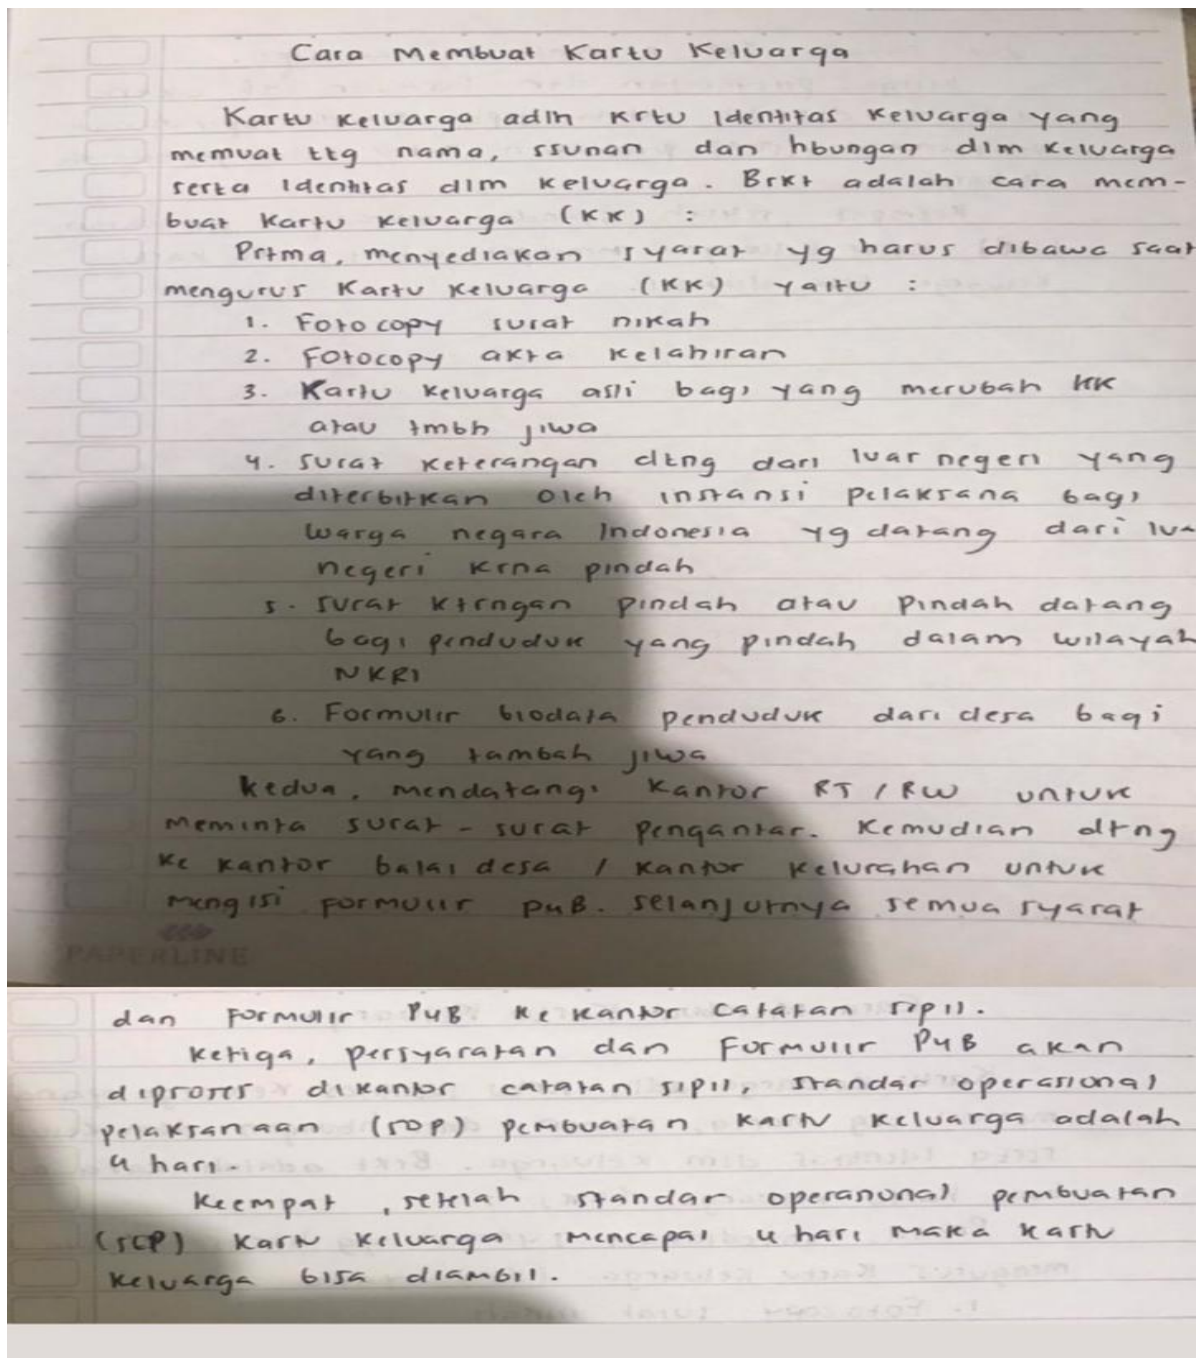 Cara Membuat Kartu Keluarga
Kartu Keluarga adlh krtu Identitas Keluarga yang
memuat ttg nama, ssunan dan hbungan dlm Keluarga
serta Identitas dlm Keluarga. Brkt adalah cara mem-
buat Kartu Keluarga (KK) :
Prtma, menyediakan syarat yg harus dibawa saat
mengurus Kartu Keluarga (KK) yaitu :
1. Foto copy surat nikah
2. Fotocopy akta Kelahiran
3. Kartu Keluarga asli bagi yang merubah KK
atau tmbh jiwa
4. Surat Keterangan dtng dari luar negeri yang
diterbitkan oleh instansi Pelaksana bagi
Warga negara Indonesia yg datang dari lua
negeri krna pindah
5. Surat Ktrngan Pindah atau Pindah datang
bagi penduduk yang pindah dalam wilayah
NKRI
6. Formulir biodata penduduk dari desa bagi
yang tambah jiwa
Kedua, mendatangi Kantor RT / RW untuk
meminta surat - surat Pengantar. Kemudian dtng
Ke Kantor balai desa / Kantor Kelurahan untuk
mengisi Formulir PUB. Selanjutnya semua syarat
PAPERLINE
dan Formulir PUB Ke Kantor Catatan Sipil.
Ketiga, Persyaratan dan Formulir PUB akan
diproses di Kantor catatan sipil, Standar operasional
pelaksanaan (SOP) pembuatan Kartu Keluarga adalah
4 hari.
Keempat, setelah standar operasional pembuatan
(SOP) Kartu Keluarga mencapai 4 hari maka Kartu
Keluarga bisa diambil.